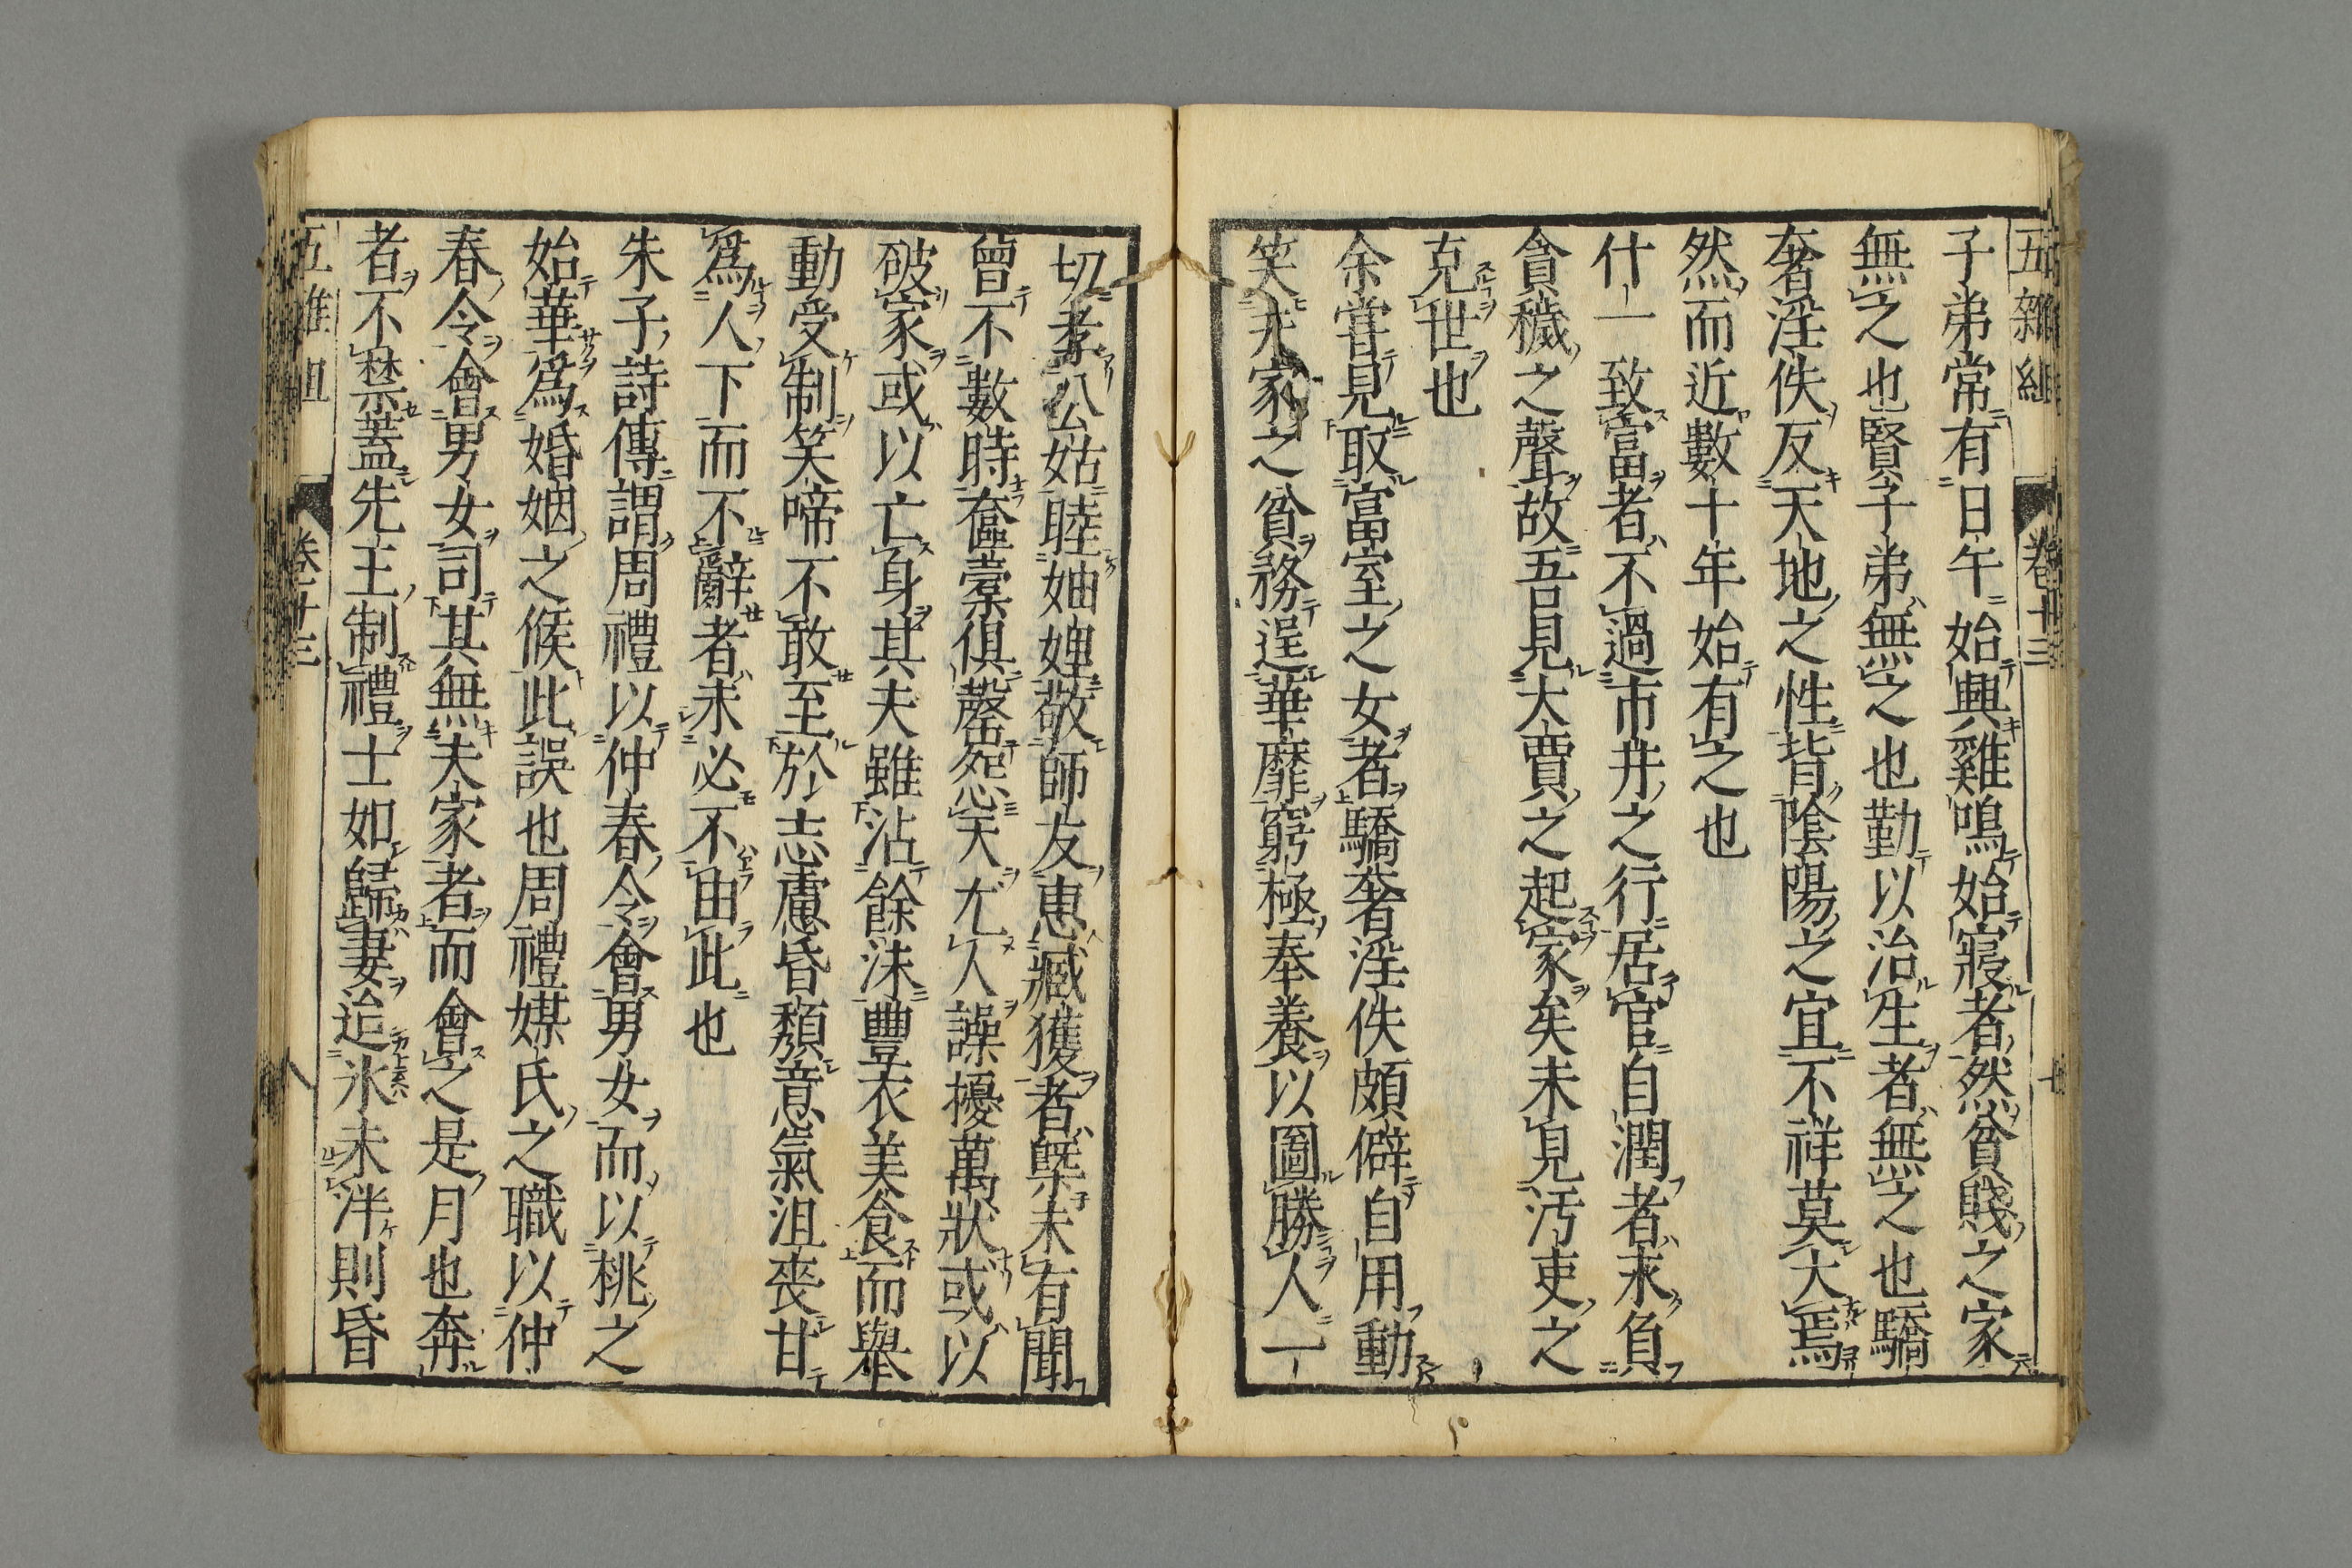 五雜組 卷十三
子弟常有日午始興雞鳴始寢者然貧賤之家
無之也賢子弟無之也勤以治生者無之也驕
奢淫佚反天地之性背陰陽之宜不祥莫大焉
然而近數十年始有之也
什一致富者不過市井之行居官自潤者求負
貪穢之聲故吾見大賈之起家矣未見汚吏之
克世也
余嘗見取富室之女者驕奢淫佚頗僻自用動
笑夫家之貧務逞華靡窮極奉養以圖勝人一
切孝公姑睦妯娌敬師友惠臧獲者槩未有聞
曾不數時奩橐俱罄怨天尤人譟擾萬狀或以
破家或以亡身其夫雖沾餘沫豐衣美食而舉
動受制笑啼不敢至於志慮昏頽意氣沮喪甘
爲人下而不辭者未必不由此也
朱子詩傳謂周禮以仲春令會男女而以桃之
始華爲婚姻之候此誤也周禮媒氏之職以仲
春令會男女司其無夫家者而會之是月也奔
者不禁蓋先王制禮士如歸妻迨氷未泮則昏
五雜組 卷十三